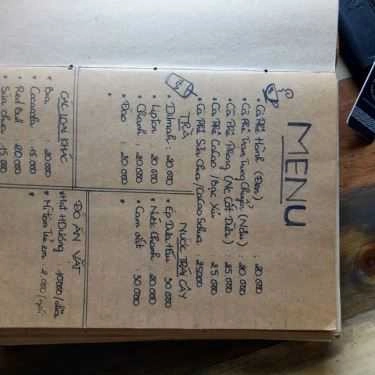 MENU
• Cà Phê Hành (Đen) : 20 000
• Cà Phê Trân Trung Chuyên (Nâu) : 20 000
• Cà Phê Phong (Nc Cốt Dừa) : 25 000
• Cà Phê CaCao / Bạc Xỉu : 25 000
• Cà Phê Sữa Chua / CaCao Sữa Chua : 25000
TRÀ
• Dilmah : 20 000
• Lipton : 20 000
• Chanh : 20 000
• Đào : 20 000
NƯỚC TRÁI CÂY
• Ép Dưa Hấu 30 000
• Nước Chanh 20 000
• Cam Vắt : 30 000
CÁC LOẠI KHÁC
• Bia 20 000
• CocaCola : 15 000
• Red Bull : 20 000
• Sữa chua : 15 000
ĐỒ ĂN VẶT
• Hạt Hướng 10 000 / đĩa
• Mì tôm trẻ em : 2 000 / gói